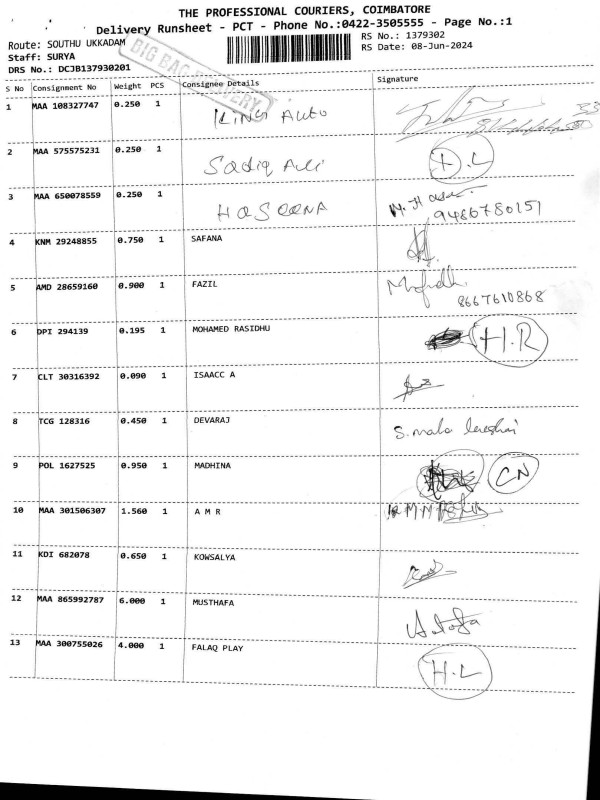 THE PROFESSIONAL COURIERS, COIMBATORE
Delivery Runsheet - PCT - Phone No.:0422-3505555 - Page No.:1
Route: SOUTHU UKKADAM
RS No.: 1379302
Staff: SURYA
RS Date: 08-Jun-2024
DRS No.: DCJB137930201
BIG BAG DELIVERY
S No Consignment No Weight PCS Consignee Details Signature
1 MAA 108327747 0.250 1 KING AUTO
2 MAA 575575231 0.250 1 Sadiq Ali
3 MAA 650078559 0.250 1 HASEENA
9486780157
4 KNM 29248855 0.750 1 SAFANA
5 AMD 28659160 0.900 1 FAZIL
8667610868
6 DPI 294139 0.195 1 MOHAMED RASIDHU H.R
7 CLT 30316392 0.090 1 ISAACC A
8 TCG 128316 0.450 1 DEVARAJ S. mala
9 POL 1627525 0.950 1 MADHINA CN
10 MAA 301506307 1.560 1 A M R
11 KDI 682078 0.650 1 KOWSALYA
12 MAA 865992787 6.000 1 MUSTHAFA
13 MAA 300755026 4.000 1 FALAQ PLAY H.L